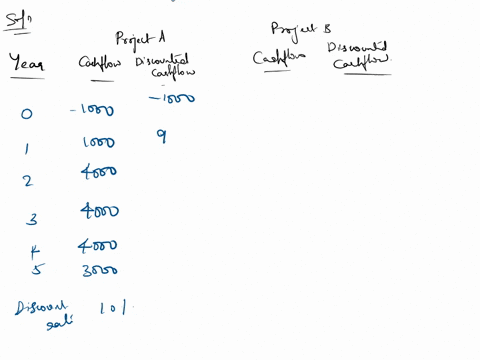 Sol^n
Project A Project B
Year Cashflow Discounted Cashflow Cashflow Discounted Cashflow
0 -1000 -1000
1 1000 9
2 4000
3 4000
4 4000
5 3000
Discount rate 10%